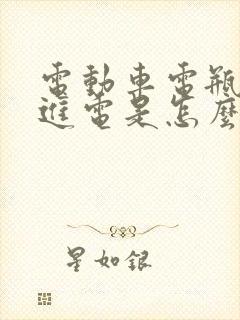 電動車電瓶
進電是怎麼
星如銀